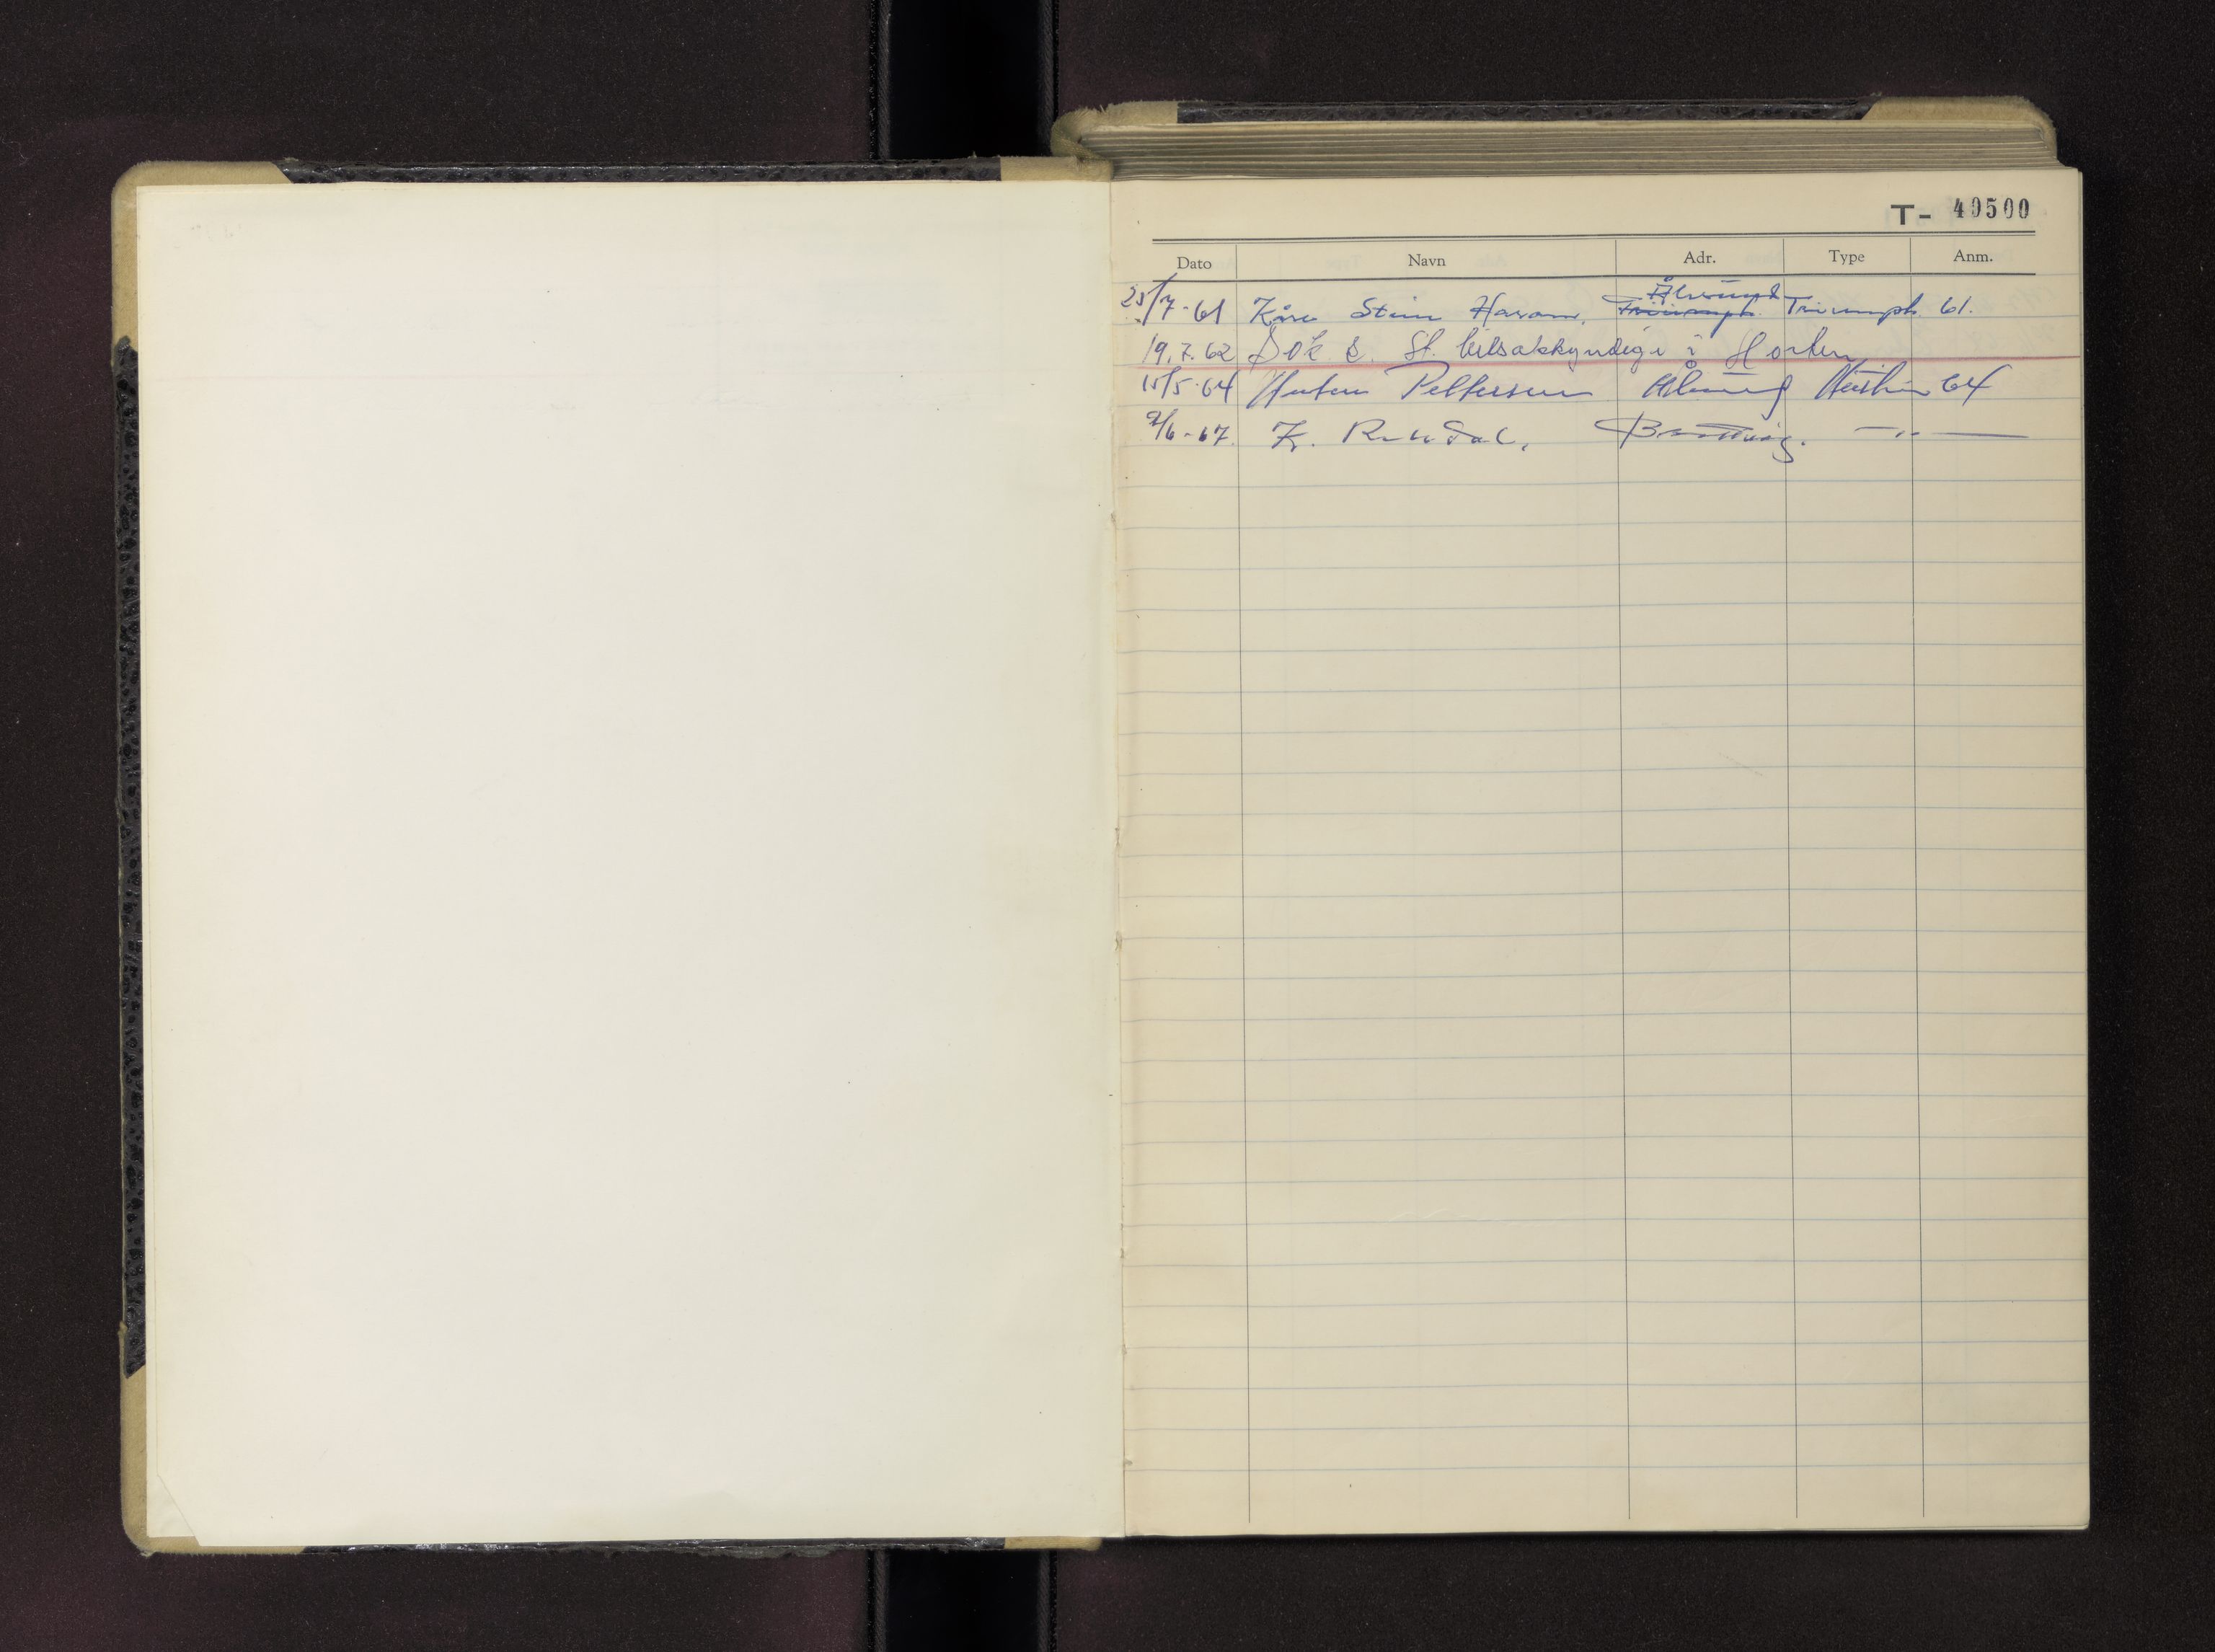 T- 40500
Dato Navn Adr. Type Anm.
25/7-61 Kåre Stein Haram. Ålesund Triumph Triumph. 61.
19.7.62 Dok s. St. bilsakkyndige i Horten
15/5-64 Pettersen Ålesund Austin 64
2/6-67. K. Brattvåg. —„—